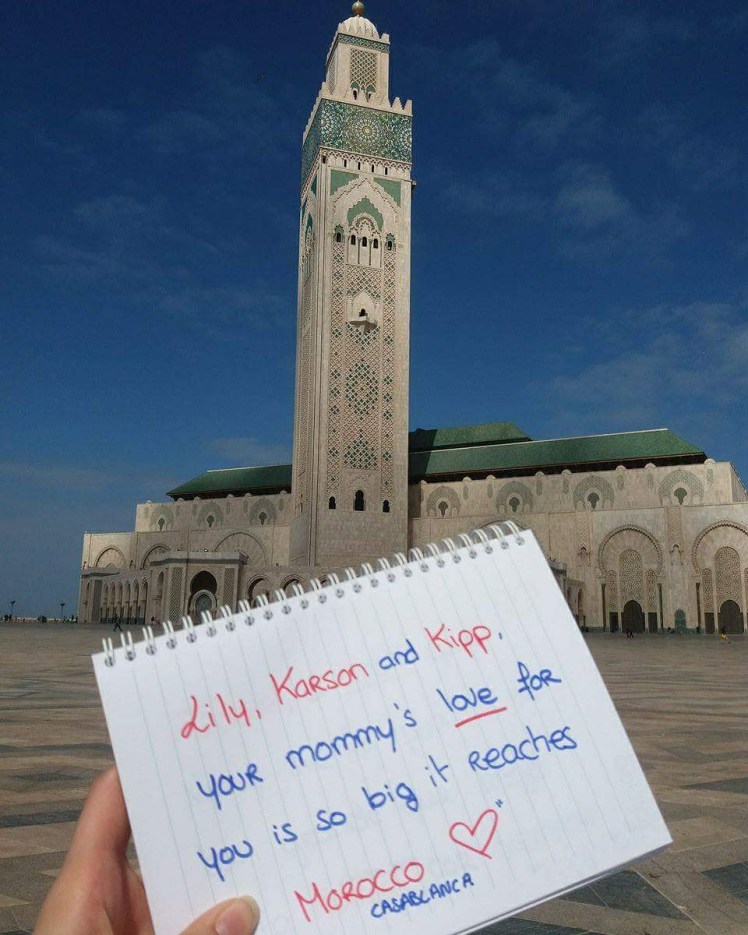 Lily, Karson and Kipp,
your mommy's love for
you is so big it reaches
Morocco
CASABLANCA